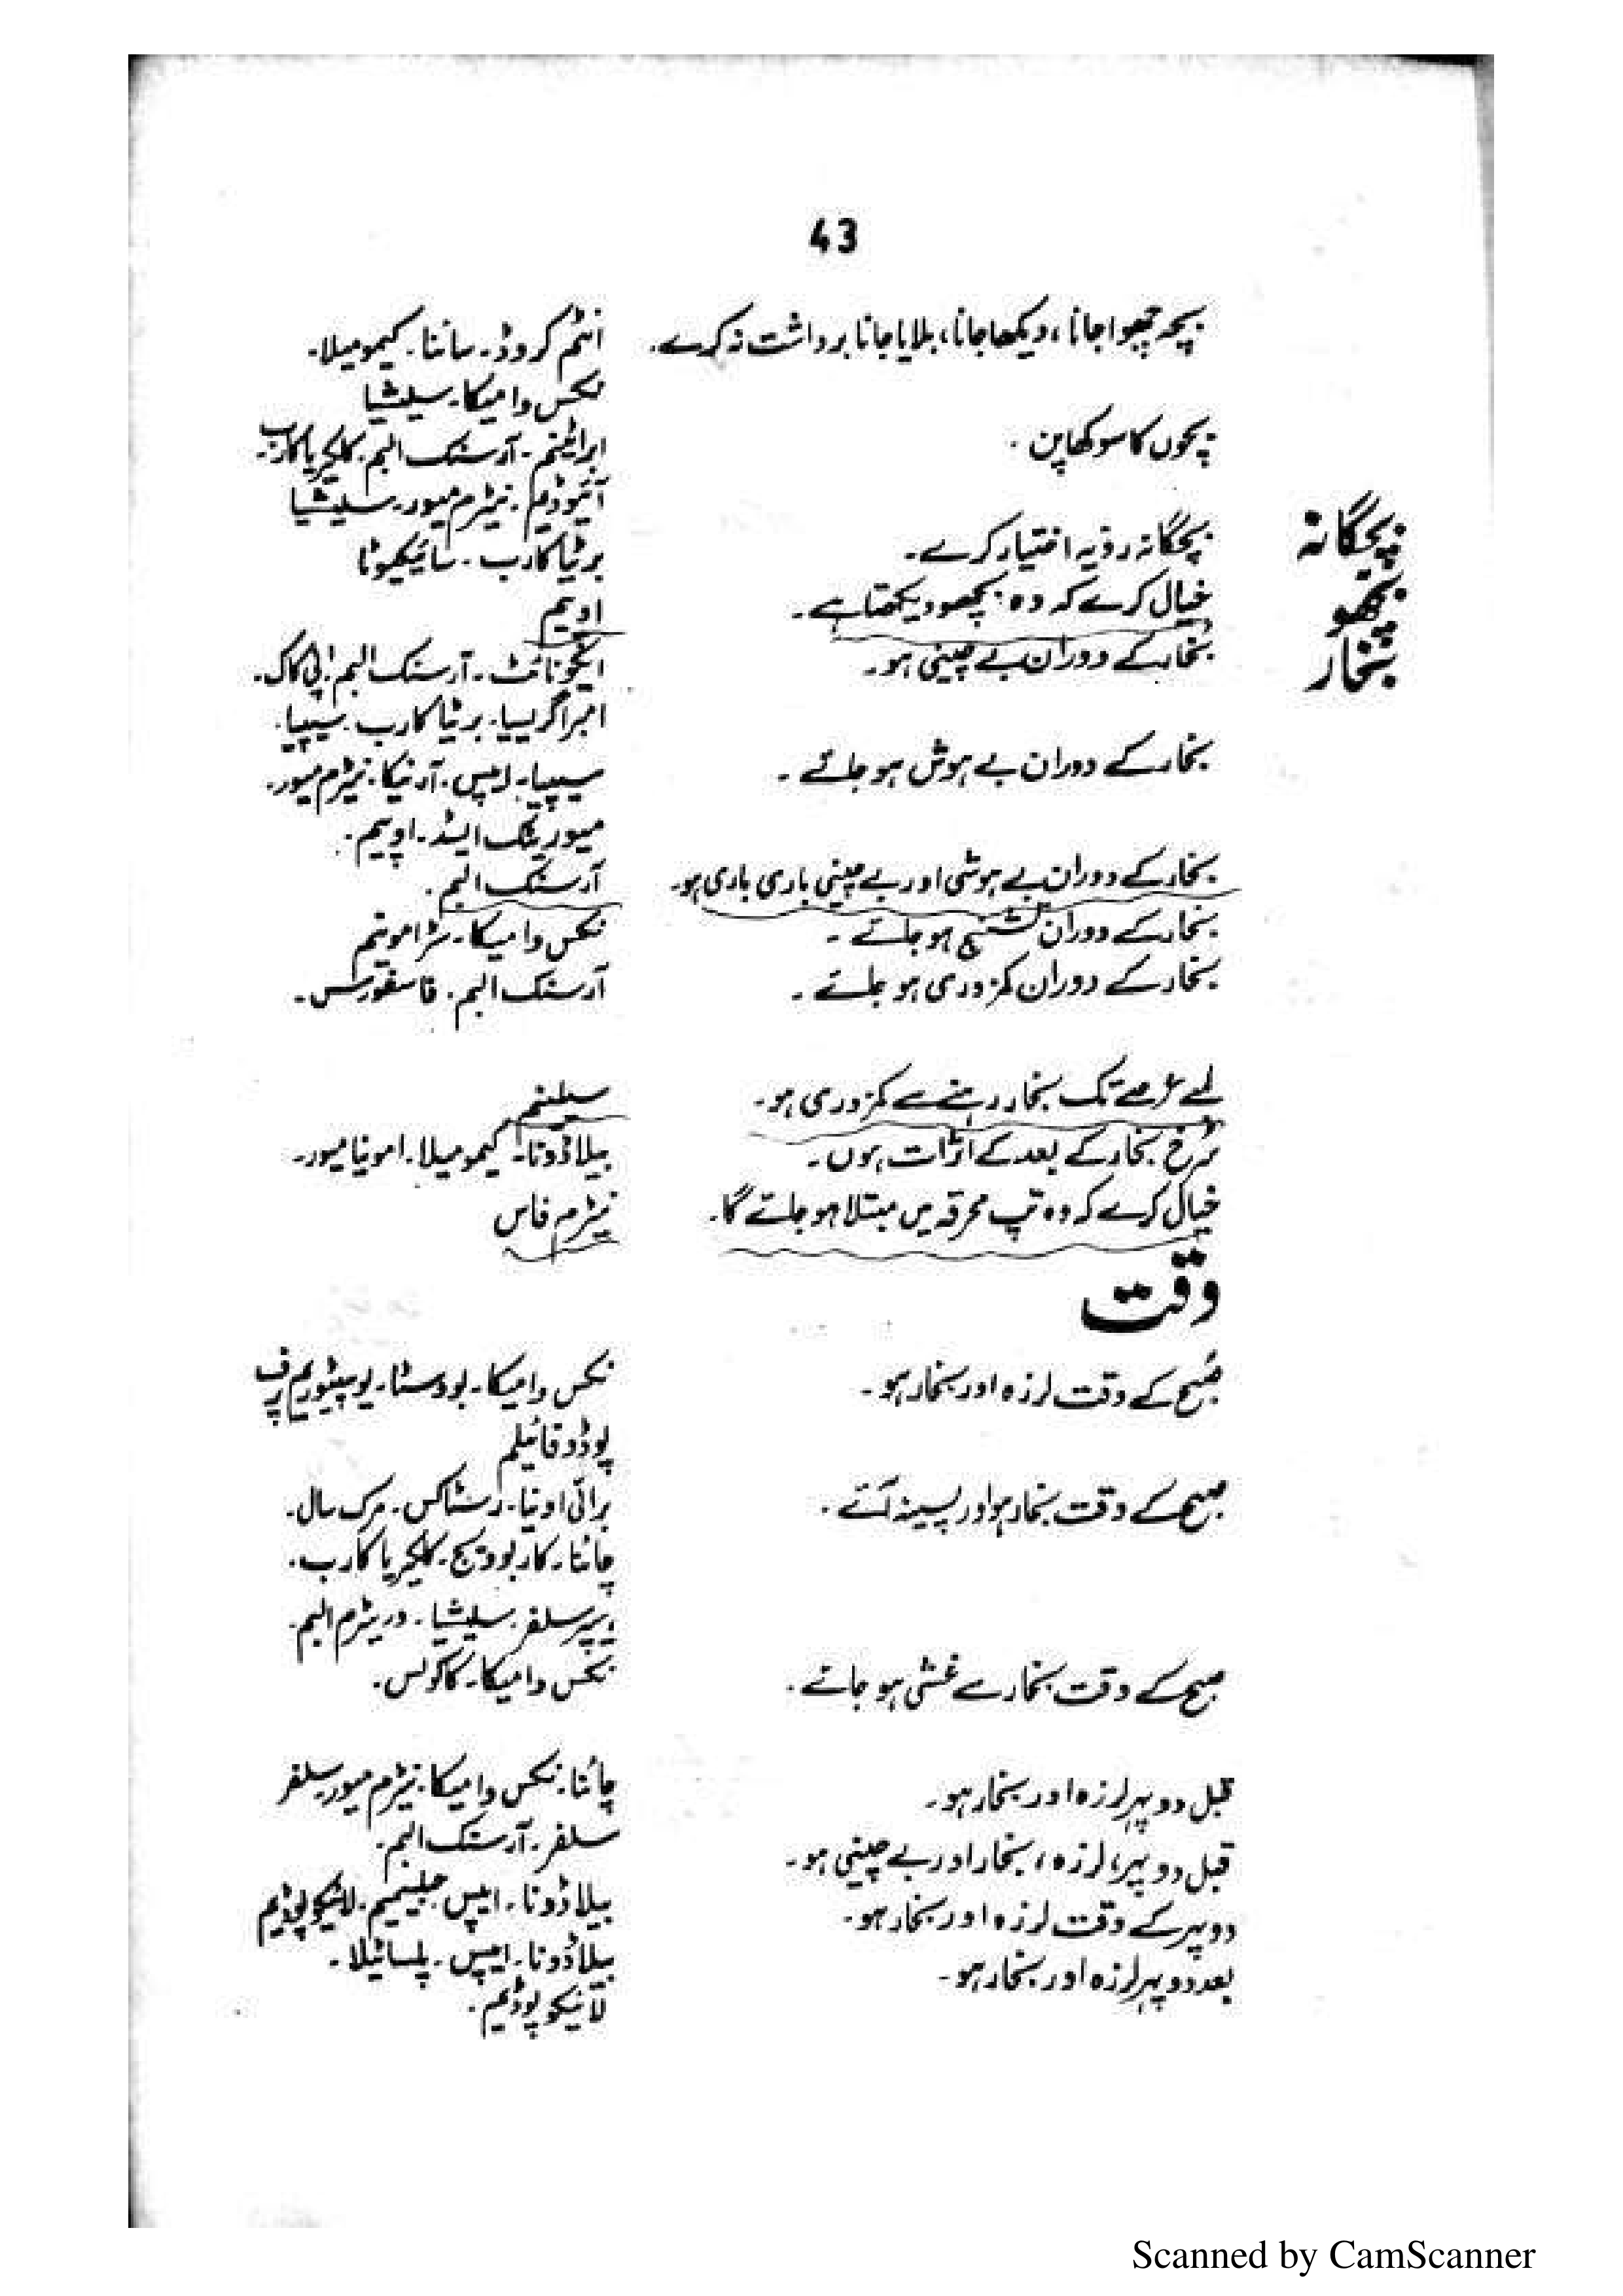 43
بچہ چھوا جانا، دیکھا جانا، بلایا جانا برداشت نہ کرے۔ انٹم کروڈ۔ سائنا۔ کیمومیلا۔
نکس وامیکا۔ سلیشیا
بچوں کا سوکھا پن۔ ابراٹینم۔ آرسنک البم۔ کلکیریا کارب۔
آئیوڈیم۔ نیٹرم میور۔ سلیشیا
بچگانہ
بچگانہ رویہ اختیار کرے۔ برٹیا کارب۔ سائیکیوٹا
بچھو
خیال کرے کہ وہ بچھو دیکھتا ہے۔ اوپیم
بخار
بخار کے دوران بے چینی ہو۔ ایکونائٹ۔ آرسنک البم۔ اپی کاک۔
امبرا گریسیا۔ برٹیا کارب۔ سیپیا۔
بخار کے دوران بے ہوش ہو جائے۔ سیپیا۔ ایپس۔ آرنیکا۔ نیٹرم میور۔
میوریٹک ایسڈ۔ اوپیم۔
بخار کے دوران بے ہوشی اور بے چینی باری باری ہو۔ آرسنک البم۔
بخار کے دوران تشنج ہو جائے۔ نکس وامیکا۔ سٹرامونیم
بخار کے دوران کمزوری ہو جائے۔ آرسنک البم۔ فاسفورس۔
لمبے عرصے تک بخار رہنے سے کمزوری ہو۔ سیلینیم
سُرخ بخار کے بعد کے اثرات ہوں۔ بیلاڈونا۔ کیمومیلا۔ امونیا میور۔
خیال کرے کہ وہ تپ محرقہ میں مبتلا ہو جائے گا۔ نیٹرم فاس
وقت
صُبح کے وقت لرزہ اور بخار ہو۔ نکس وامیکا۔ بووسٹا۔ یوپیٹوریم پرف
پوڈوفائیلم
صبح کے وقت بخار ہو اور پسینہ آئے۔ برائی اونیا۔ رسٹاکس۔ مرک سال۔
چائنا۔ کاربوویج۔ کلکیریا کارب۔
ہیپر سلفر۔ سلیشیا۔ وریٹرم البم۔
صبح کے وقت بخار سے غشی ہو جائے۔ نکس وامیکا۔ کاکولس۔
قبل دوپہر لرزہ اور بخار ہو۔ چائنا۔ نکس وامیکا۔ نیٹرم میور۔ سلفر
قبل دوپہر، لرزہ، بخار اور بے چینی ہو۔ سلفر۔ آرسنک البم۔
دوپہر کے وقت لرزہ اور بخار ہو۔ بیلاڈونا۔ ایپس۔ لائیکوپوڈیم
بعد دوپہر لرزہ اور بخار ہو۔ بیلاڈونا۔ ایپس۔ پلساٹیلا۔
لائیکوپوڈیم۔
Scanned by CamScanner